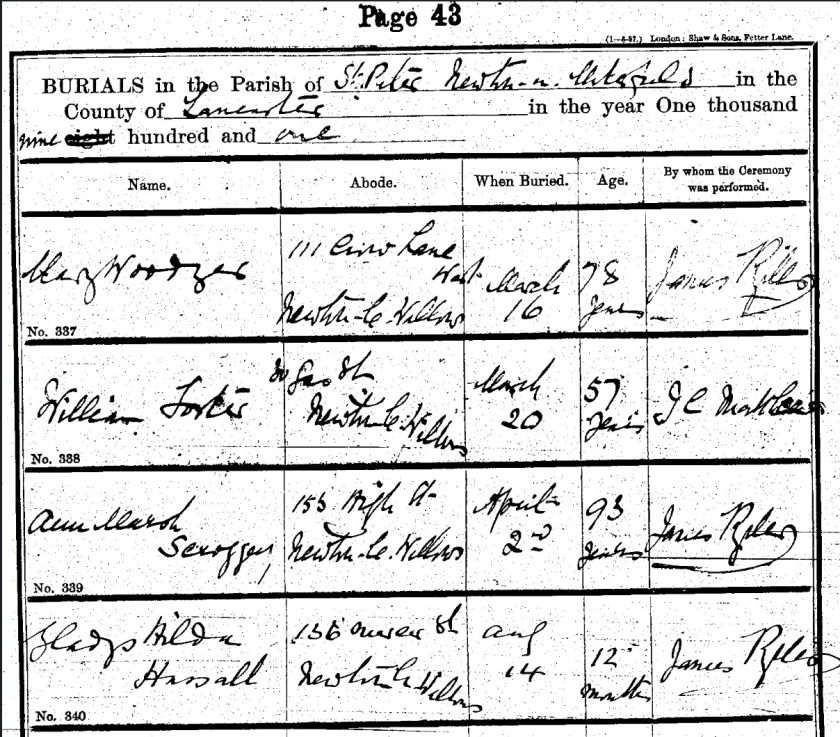 Page 43
(1—5-37.) London: Shaw & Sons, Fetter Lane.
BURIALS in the Parish of St. Peter Newton-in-Makerfield in the
County of Lancaster in the year One thousand
nine eight hundred and one
Name. Abode. When Buried. Age. By whom the Ceremony was performed.
111 Crow Lane
Mary West March 78 James
Newton-le-Willows 16 years
No. 337
Gas St March
William Newton-le-Willows 20 57 years J C
No. 338
Ann Marsh 155 High St April 93 James
Newton-le-Willows 2nd years
No. 339
Gladys Hilda 136 St Aug 12 James
Hassall Newton-le-Willows 14 months
No. 340